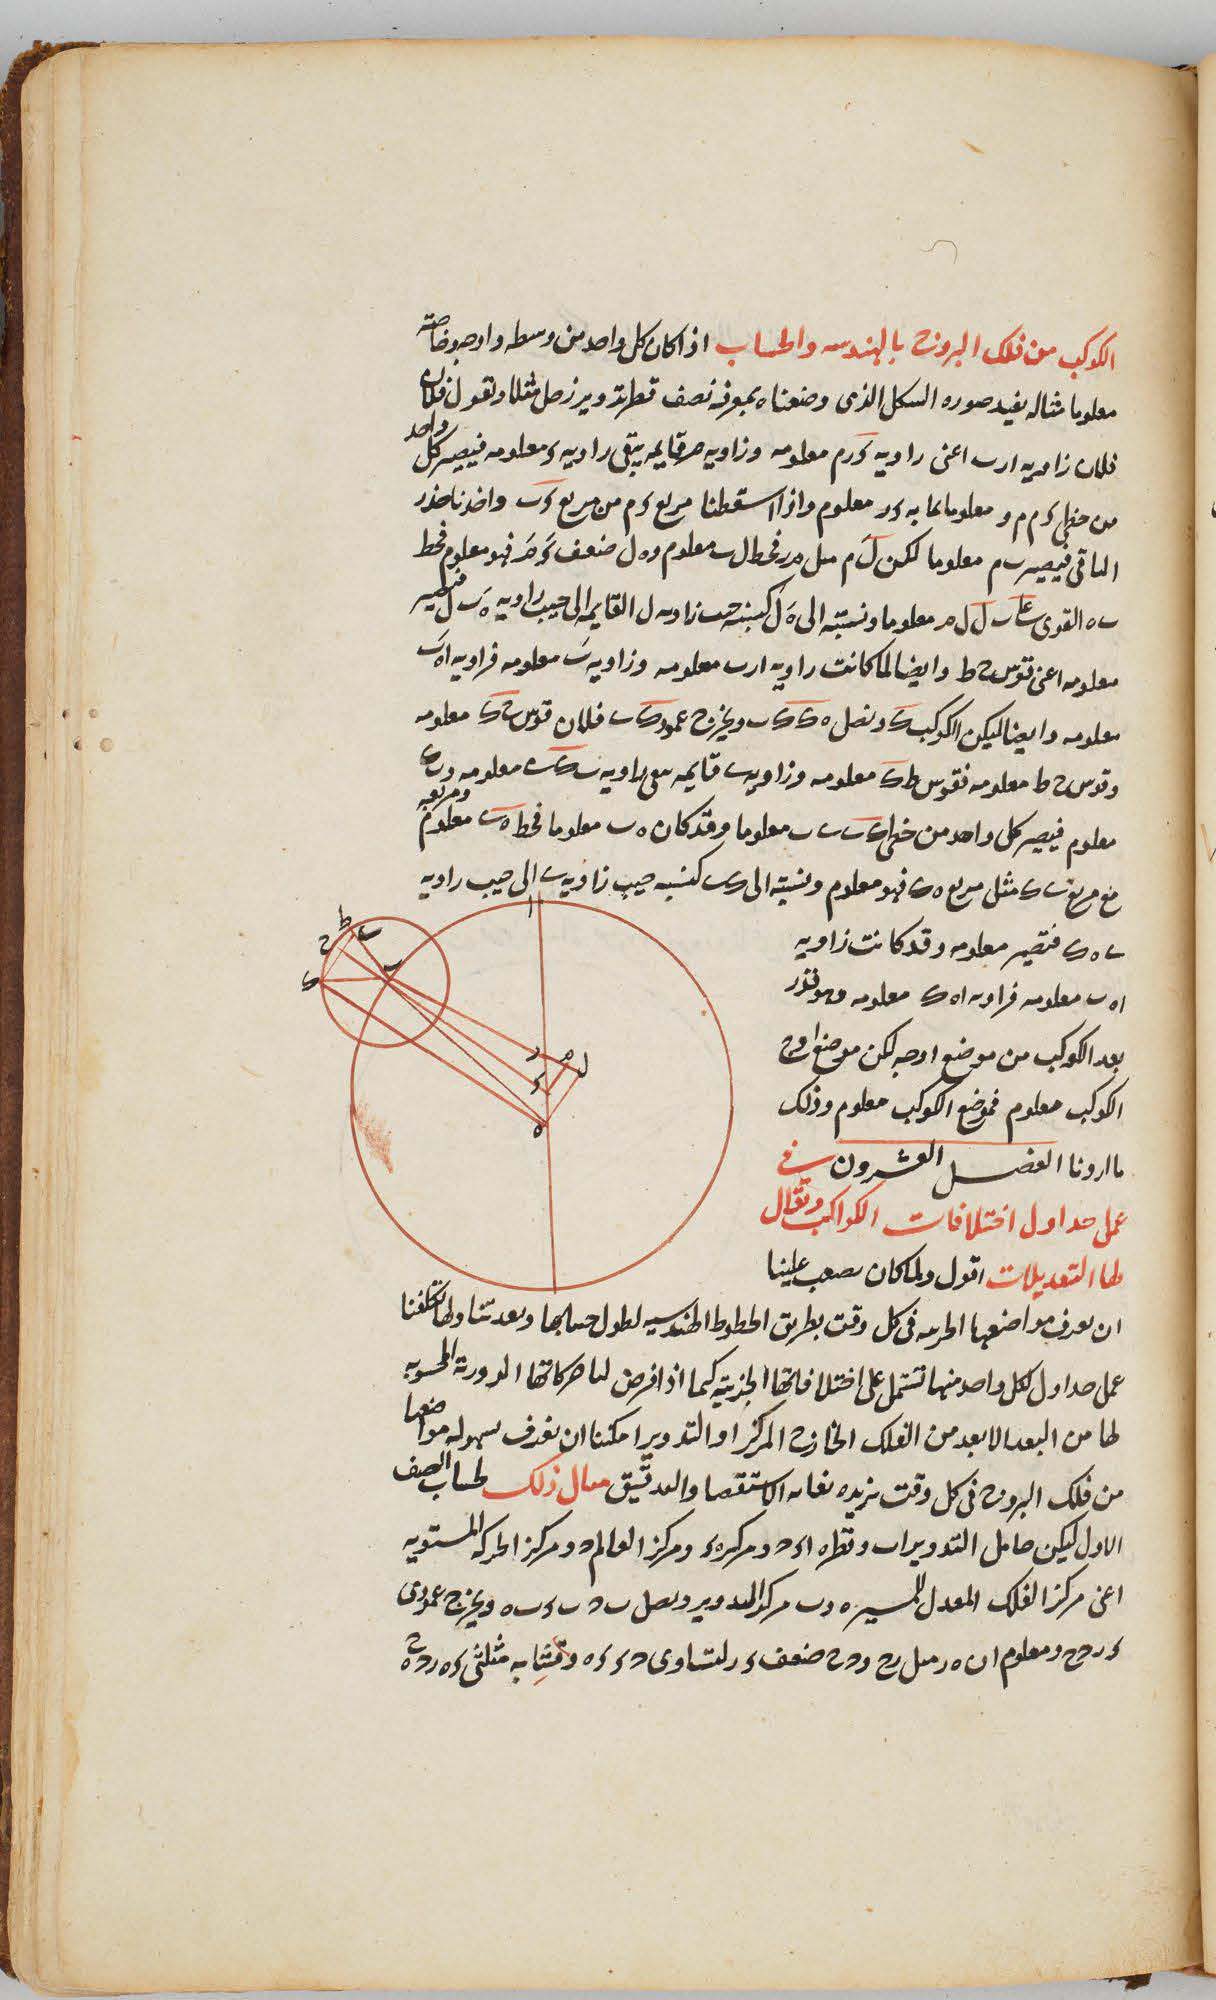 الكوكب من فلك البروج بالهندسه والحساب اذا كان كل واحد من وسطه واوجه وخاصته
معلوما مثاله نفيد صوره السكل الذى وضعناه بمعرفة نصف قطر تدوير زحل مثلا ونقول
فلان زاويه ا ر ب اعنى زاويه ى ر م معلومه وزاويه م قايمه يبقى زاويه ى معلومه فيصير كل واحد
من خطى ى م م ر معلوما بما به ى ر معلوم واذا اسقطنا مربع ى م من مربع ى ب واخذنا جذر
الباقى فيصير ب م معلوما لكن ل م مثل م ر فخط ل ب معلوم و ه ل ضعف ى م فهو معلوم فخط
ب ه القوى على ب ل ل ه معلوما ونسبته الى ه ل كنسبة جيب زاويه ل القايمه الى جيب زاويه ه ب ل فتصير
معلومه اعنى قوس ح ط وايضا لما كانت زاويه ا ر ب معلومه وزاويه ب معلومه فزاويه ا ه ب
معلومه وايضا ليكن الكوكب ك ونصل ه ك ك ب ويخرج عمود ك ى فلان قوس ح ك معلومه
وقوس ح ط معلومه فقوس ط ك معلومه وزاويه ى قايمه يبقى زاويه ب ك ى معلومه و ب ك
معلوم فيصير كل واحد من خطى ك ى ى ب معلوما وقد كان ه ب معلوما فخط ه ى معلوم ومربعه
مع مربع ى ك مثل مربع ه ك فهو معلوم ونسبته الى ك ى كنسبه جيب زاويه ى الى جيب زاويه
ب ه ك فتصير معلومه وقد كانت زاويه
ا ه ب معلومه فزاويه ا ه ك معلومه وهو قدر
بعد الكوكب من موضع اوجه لكن موضع اوج
الكوكب معلوم فموضع الكوكب معلوم وذلك
ما اردنا الفصل العشرون فى
عمل جداول اختلافات الكواكب ويقال
لها التعديلات اقول ولما كان يصعب علينا
ان نعرف مواضعها الجزئيه فى كل وقت بطريق الخطوط الهندسيه لطول حسابها وبعد تناولها تكلفنا
عمل جداول لكل واحد منها تشتمل على اختلافاتها الجزئيه كيما اذا فرض لنا حركاتها الدورية المحسوبه
لها من البعد الابعد من الفلك الخارج المركز او التدوير امكننا ان نعرف بسهوله مواضعها
من فلك البروج فى كل وقت نريده بغايه الاستقصا والتدقيق مثال ذلك لحساب الصف
الاول ليكن حامل التدوير ا ب وقطره ا ى د ومركزه ى ومركز العالم د ومركز الحركه المستويه
اعنى مركز الفلك المعدل للمسير ه و ب مركز التدوير ونصل ب د ب ى ب ه ويخرج عمودى
ى ر د ح ومعلوم ان ه ر مثل ر ح و د ح ضعف ى ر لتساوى د ى ى ه وتشابه مثلثى ى ه ر د ه ح
ا
ط
ب
ح
ك
ب
ر
م
ل
ى
ه